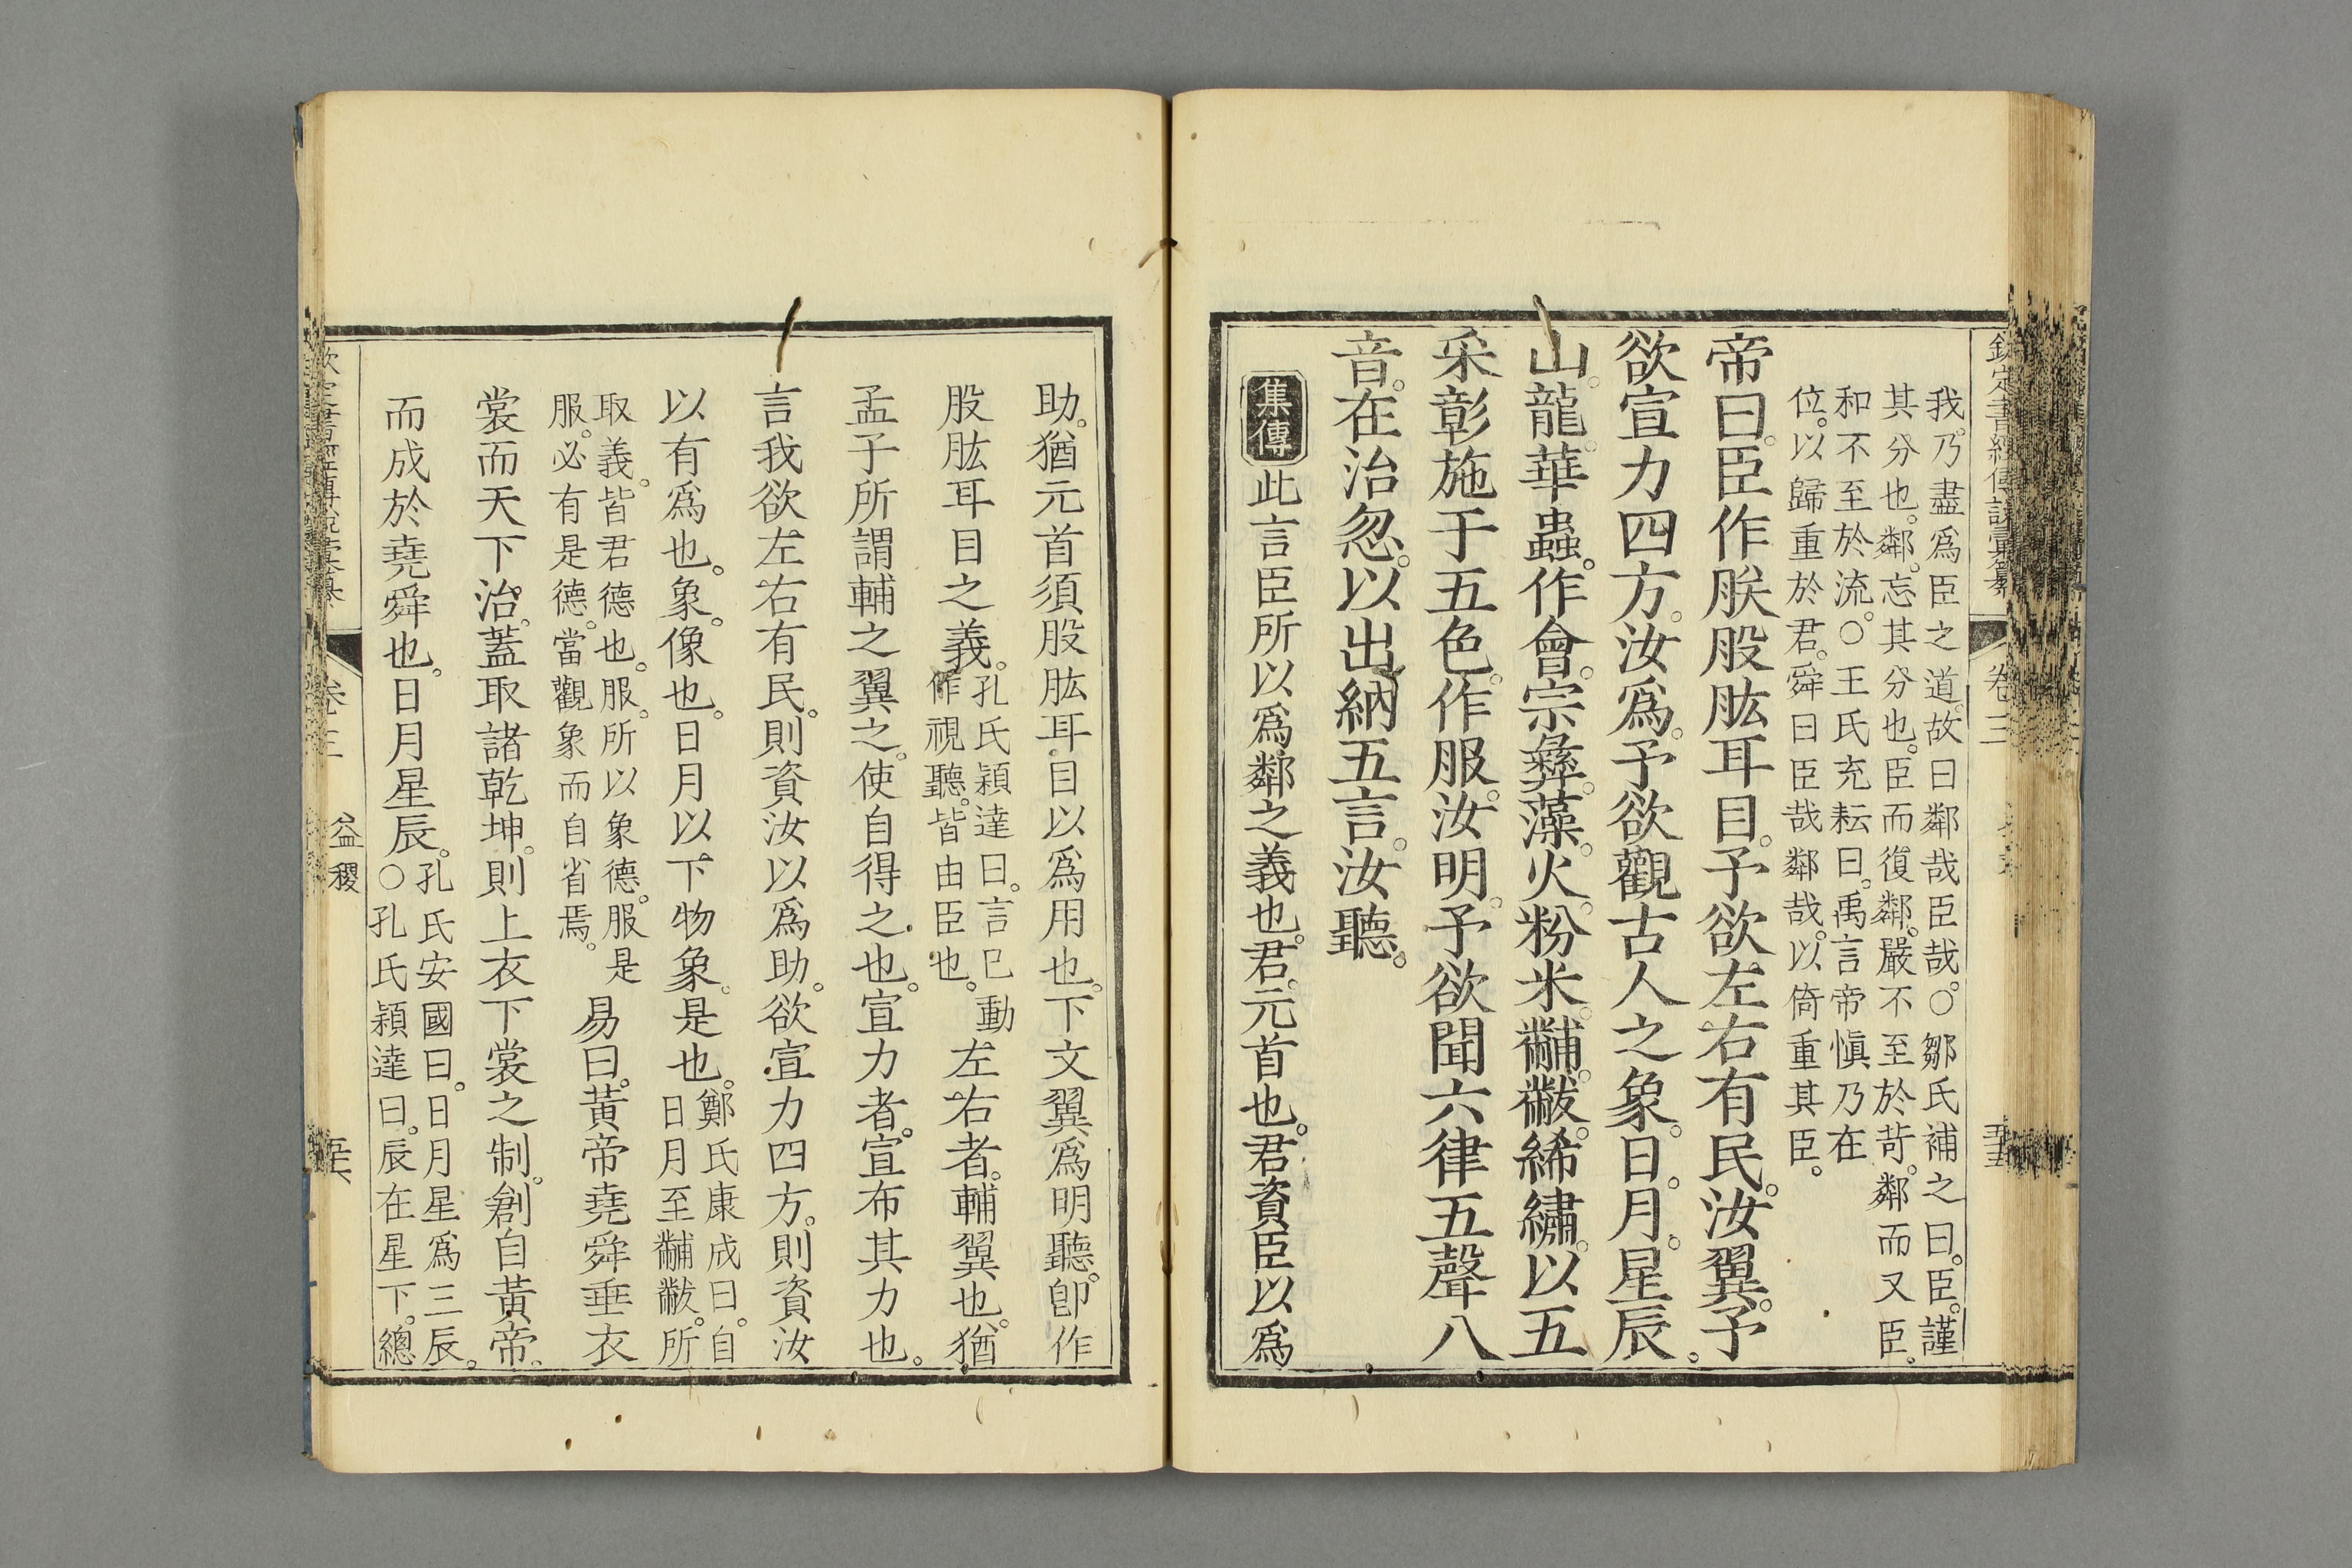 欽定書經傳說彙纂 卷三
我。乃盡爲臣之道。故曰鄰哉臣哉。○鄒氏補之曰。臣。謹
其分也。鄰。忘其分也。臣而復鄰。嚴不至於苛。鄰而又臣。
和不至於流。○王氏充耘曰。禹言帝愼乃在
位。以歸重於君。舜曰臣哉鄰哉。以倚重其臣。
帝曰。臣作朕股肱耳目。予欲左右有民。汝翼。予
欲宣力四方。汝爲。予欲觀古人之象。日。月。星辰。
山。龍。華蟲。作會。宗彝。藻。火。粉米。黼。黻。絺繡。以五
采彰施于五色。作服。汝明。予欲聞六律五聲八
音。在治忽。以出納五言。汝聽。
集傳 此言臣所以爲鄰之義也。君。元首也。君資臣以爲
助。猶元首須股肱耳目以爲用也。下文翼爲明聽。卽作
股肱耳目之義。孔氏穎達曰。言已動
作視聽。皆由臣也。
左右者。輔翼也。猶
孟子所謂輔之翼之。使自得之也。宣力者。宣布其力也。
言我欲左右有民。則資汝以爲助。欲宣力四方。則資汝
以有爲也。象。像也。日月以下物象。是也。鄭氏康成曰。自
日月至黼黻。所
取義。皆君德也。服。所以象德。服是
服。必有是德。當觀象而自省焉。
易曰。黃帝堯舜垂衣
裳而天下治。蓋取諸乾坤。則上衣下裳之制。創自黃帝。
而成於堯舜也。日月星辰。孔氏安國曰。日月星爲三辰。
○孔氏穎達曰。辰在星下。總
卷三 益稷